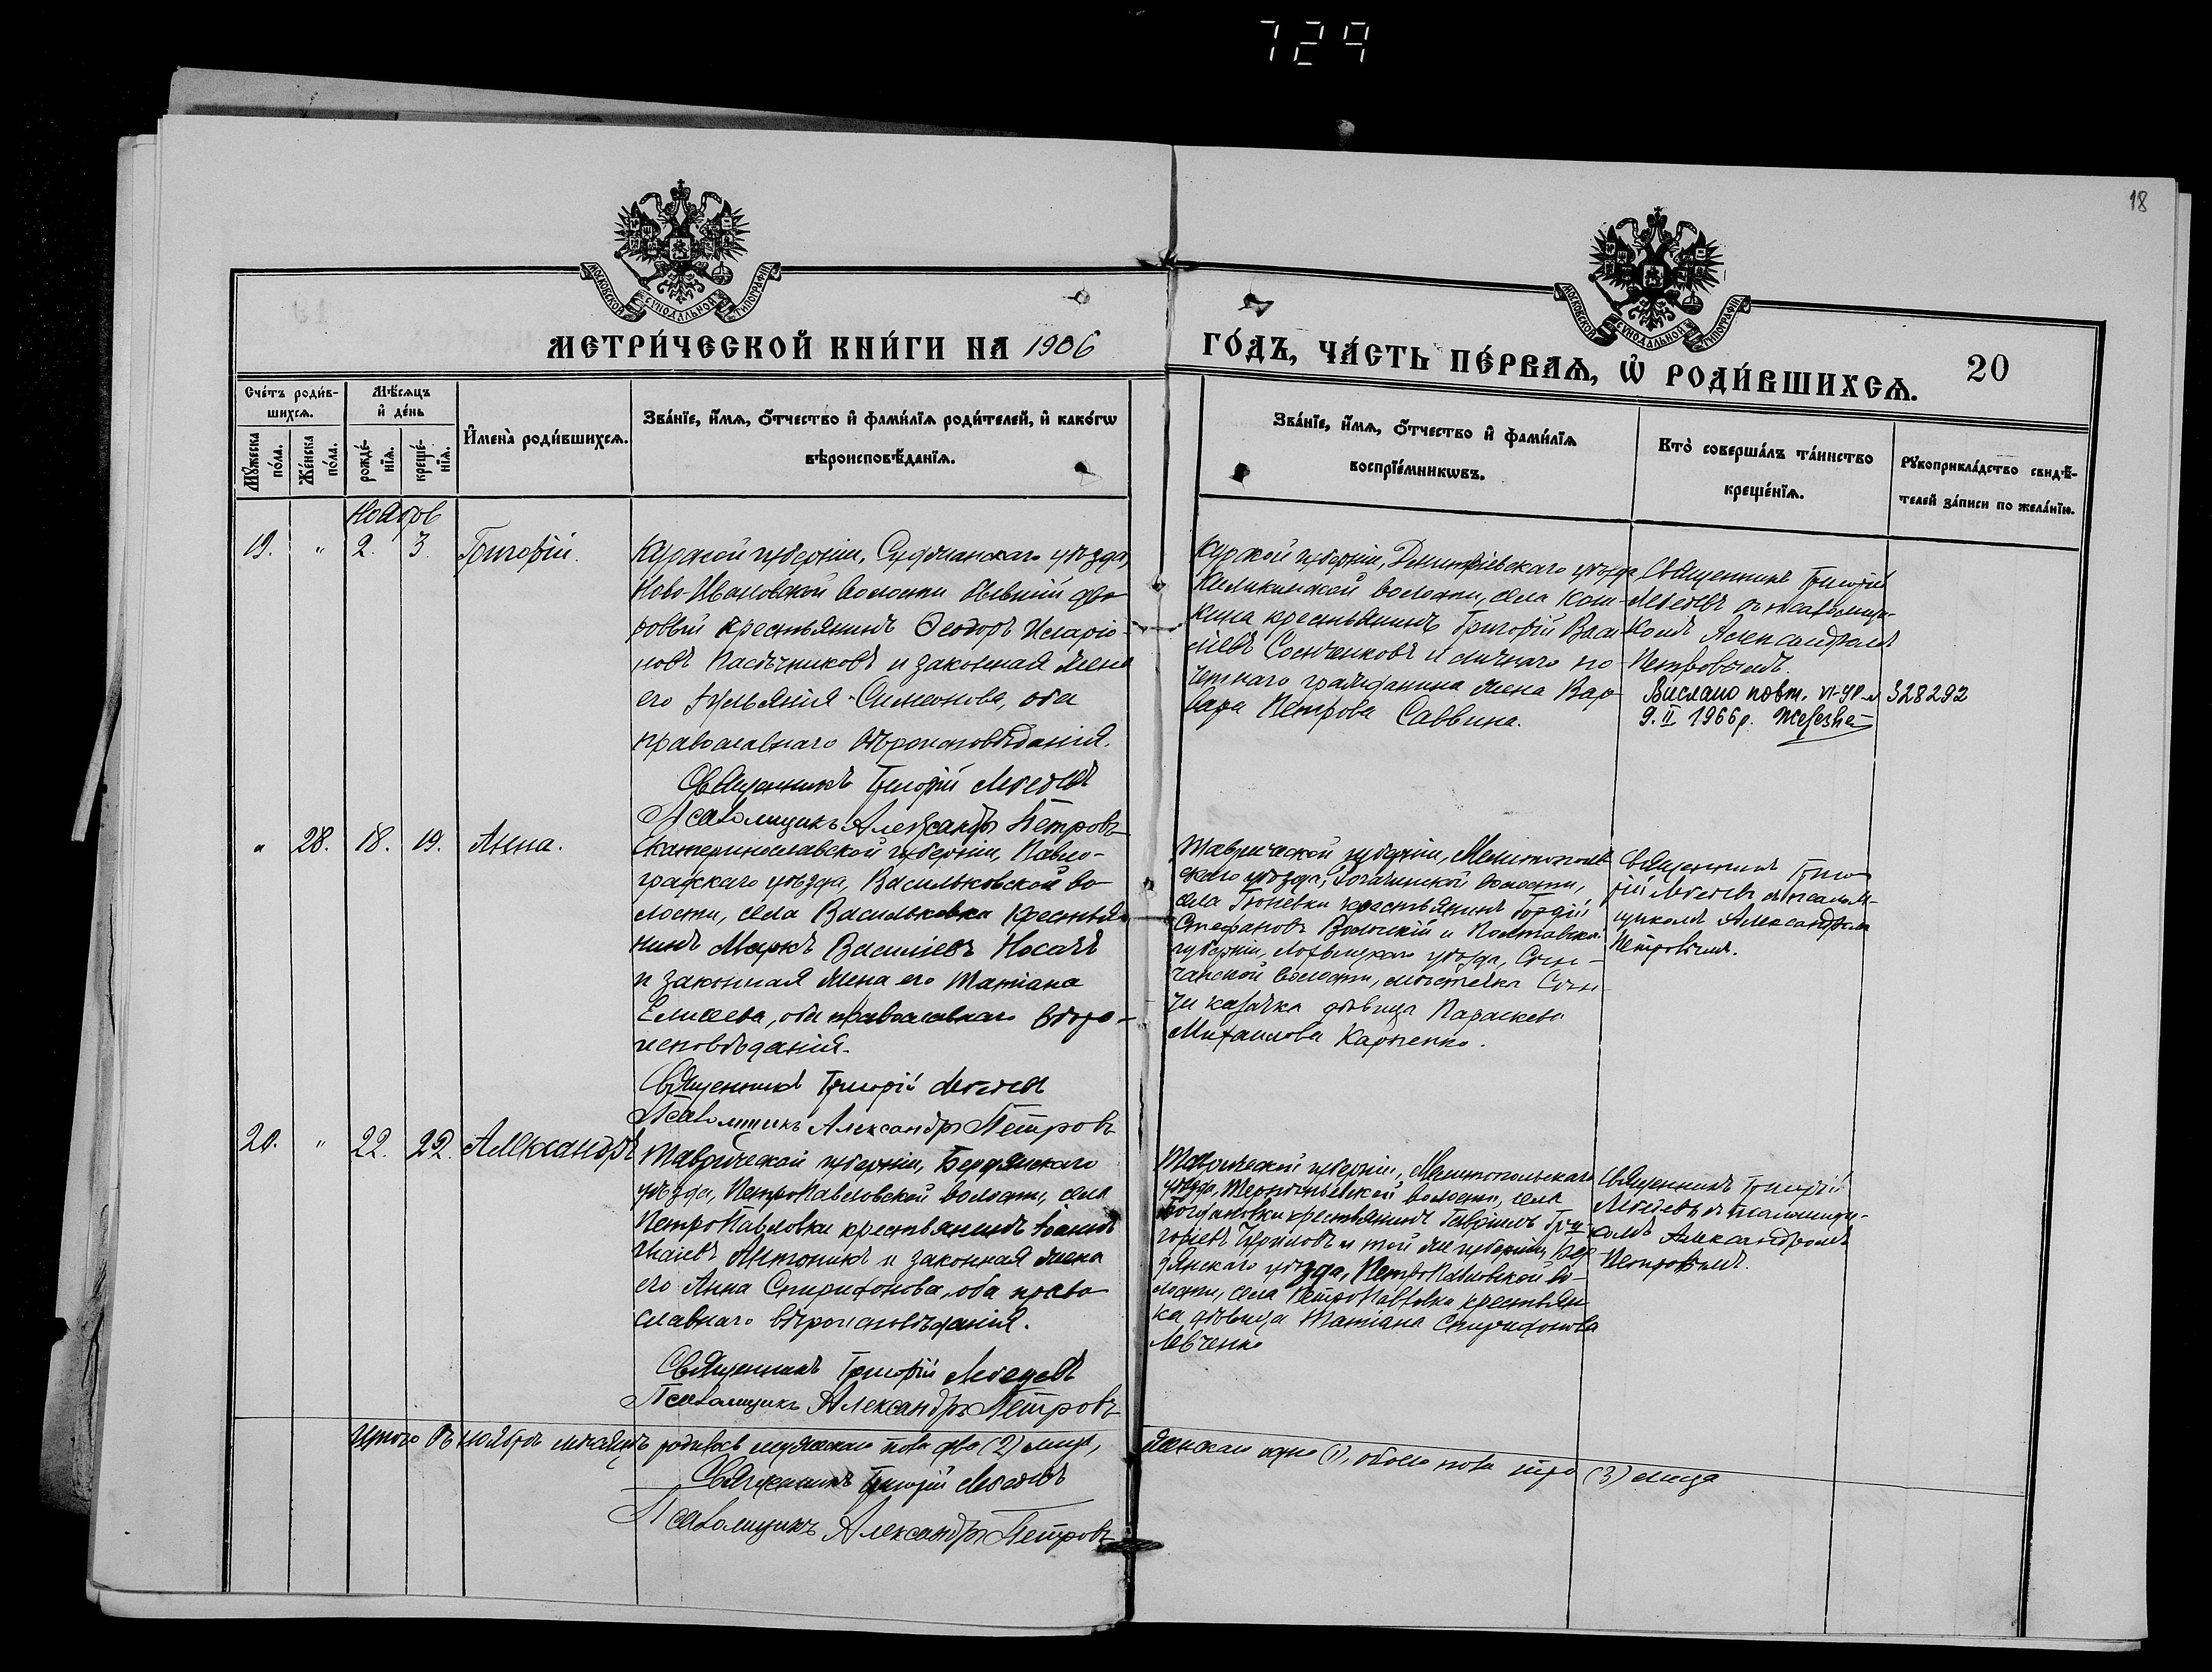 729
18
МОСКОВСКОЙ СУНОДАЛЬНОЙ ТИПОГРАФІИ
МОСКОВСКОЙ СУНОДАЛЬНОЙ ТИПОГРАФІИ
МЕТРИ́ЧЕСКОЙ КНИ́ГИ НА 1906
ГО́ДЪ, ЧА́СТЬ ПЕ́РВАѦ, Ѿ РОДИ́ВШИХСѦ.
20
Сче́тъ роди́в-
шихсѧ.
Мꙋ́жеска
по́ла.
Же́нска
по́ла.
Мѣ́сѧцъ
и҆ де́нь
рожде́-
нїѧ.
креще́-
нїѧ.
И҆мена̀ роди́вшихсѧ.
Зва́нїе, и҆́мѧ, ѻ҆́тчество и҆ фами́лїѧ роди́телей, и҆ како́гѡ
вѣроисповѣ́данїѧ.
Зва́нїе, и҆́мѧ, ѻ҆́тчество и҆ фами́лїѧ
воспрїе́мникѡвъ.
Кто̀ соверша́лъ та́инство
креще́нїѧ.
Рꙋкоприкла́дство свидѣ́-
телей за́писи по жела́нїю.
Ноябрь
19. " 2. 3. Григорій.
Курской губерніи, Суджанскаго уѣзда,
Ново-Ивановской волости бывшій дво-
ровый крестьянинъ Ѳеодоръ Иларіо-
новъ Пасѣчниковъ и законная жена
его Іульянія Симеонова, оба
православнаго вѣроисповѣданія.
Священникъ Григорій Лебедевъ
Псаломщикъ Александръ Петровъ
Курской губерніи, Дмитріевскаго уѣзда,
волости, села
кина крестьянинъ Григорій Васи-
ліевъ и личнаго по-
четнаго гражданина жена Вар-
вара Петрова Саввина.
Священникъ Григорій
Лебедевъ съ псаломщи-
комъ Александромъ
Петровымъ.
Вислано повт. VI-УР-и 328292
9.II 1966р.
" 28. 18. 19. Анна.
Екатеринославской губерніи, Павло-
градскаго уѣзда, Васильковской во-
лости, села Васильковки крестья-
нинъ Маркъ Василіевъ Носачъ
и законная жена его Татіана
Елисеева, оба православнаго вѣро-
исповѣданія.
Священникъ Григорій Лебедевъ
Псаломщикъ Александръ Петровъ
Таврической губерніи, Мелитополь-
скаго уѣзда, Рогачинской волости,
села крестьянинъ Гордій
Стефановъ и Полтавской
губерніи, Лохвицкаго уѣзда, Сѣн-
чанской волости, мѣстечка Сѣн-
чи казачка дѣвица Параскева
Михаилова Карпенко.
Священникъ Григо-
рій Лебедевъ съ псалом-
щикомъ Александромъ
Петровымъ.
20. " 22. 22. Александръ
Таврической губерніи, Бердянскаго
уѣзда, ПетроПавловской волости, села
ПетроПавловки крестьянинъ Іоаннъ
Антоникъ и законная жена
его Анна Спиридонова, оба право-
славнаго вѣроисповѣданія.
Священникъ Григорій Лебедевъ
Псаломщикъ Александръ Петровъ
Таврической губерніи, Мелитопольскаго
уѣзда, волости, села
Богдановки крестьянинъ Гавріилъ Гри-
горіевъ и той же губерніи, Бер-
дянскаго уѣзда, ПетроПавловской во-
лости, села ПетроПавловки крестьян-
ка дѣвица Татіана Спиридонова
Левченко
Священникъ Григорій
Лебедевъ съ псаломщи-
комъ Александромъ
Петровымъ.
Итого въ ноябрѣ мѣсяцѣ родилось мужескаго пола два (2) лица, женскаго одно (1), обоего пола три (3) лица
Священникъ Григорій Лебедевъ
Псаломщикъ Александръ Петровъ